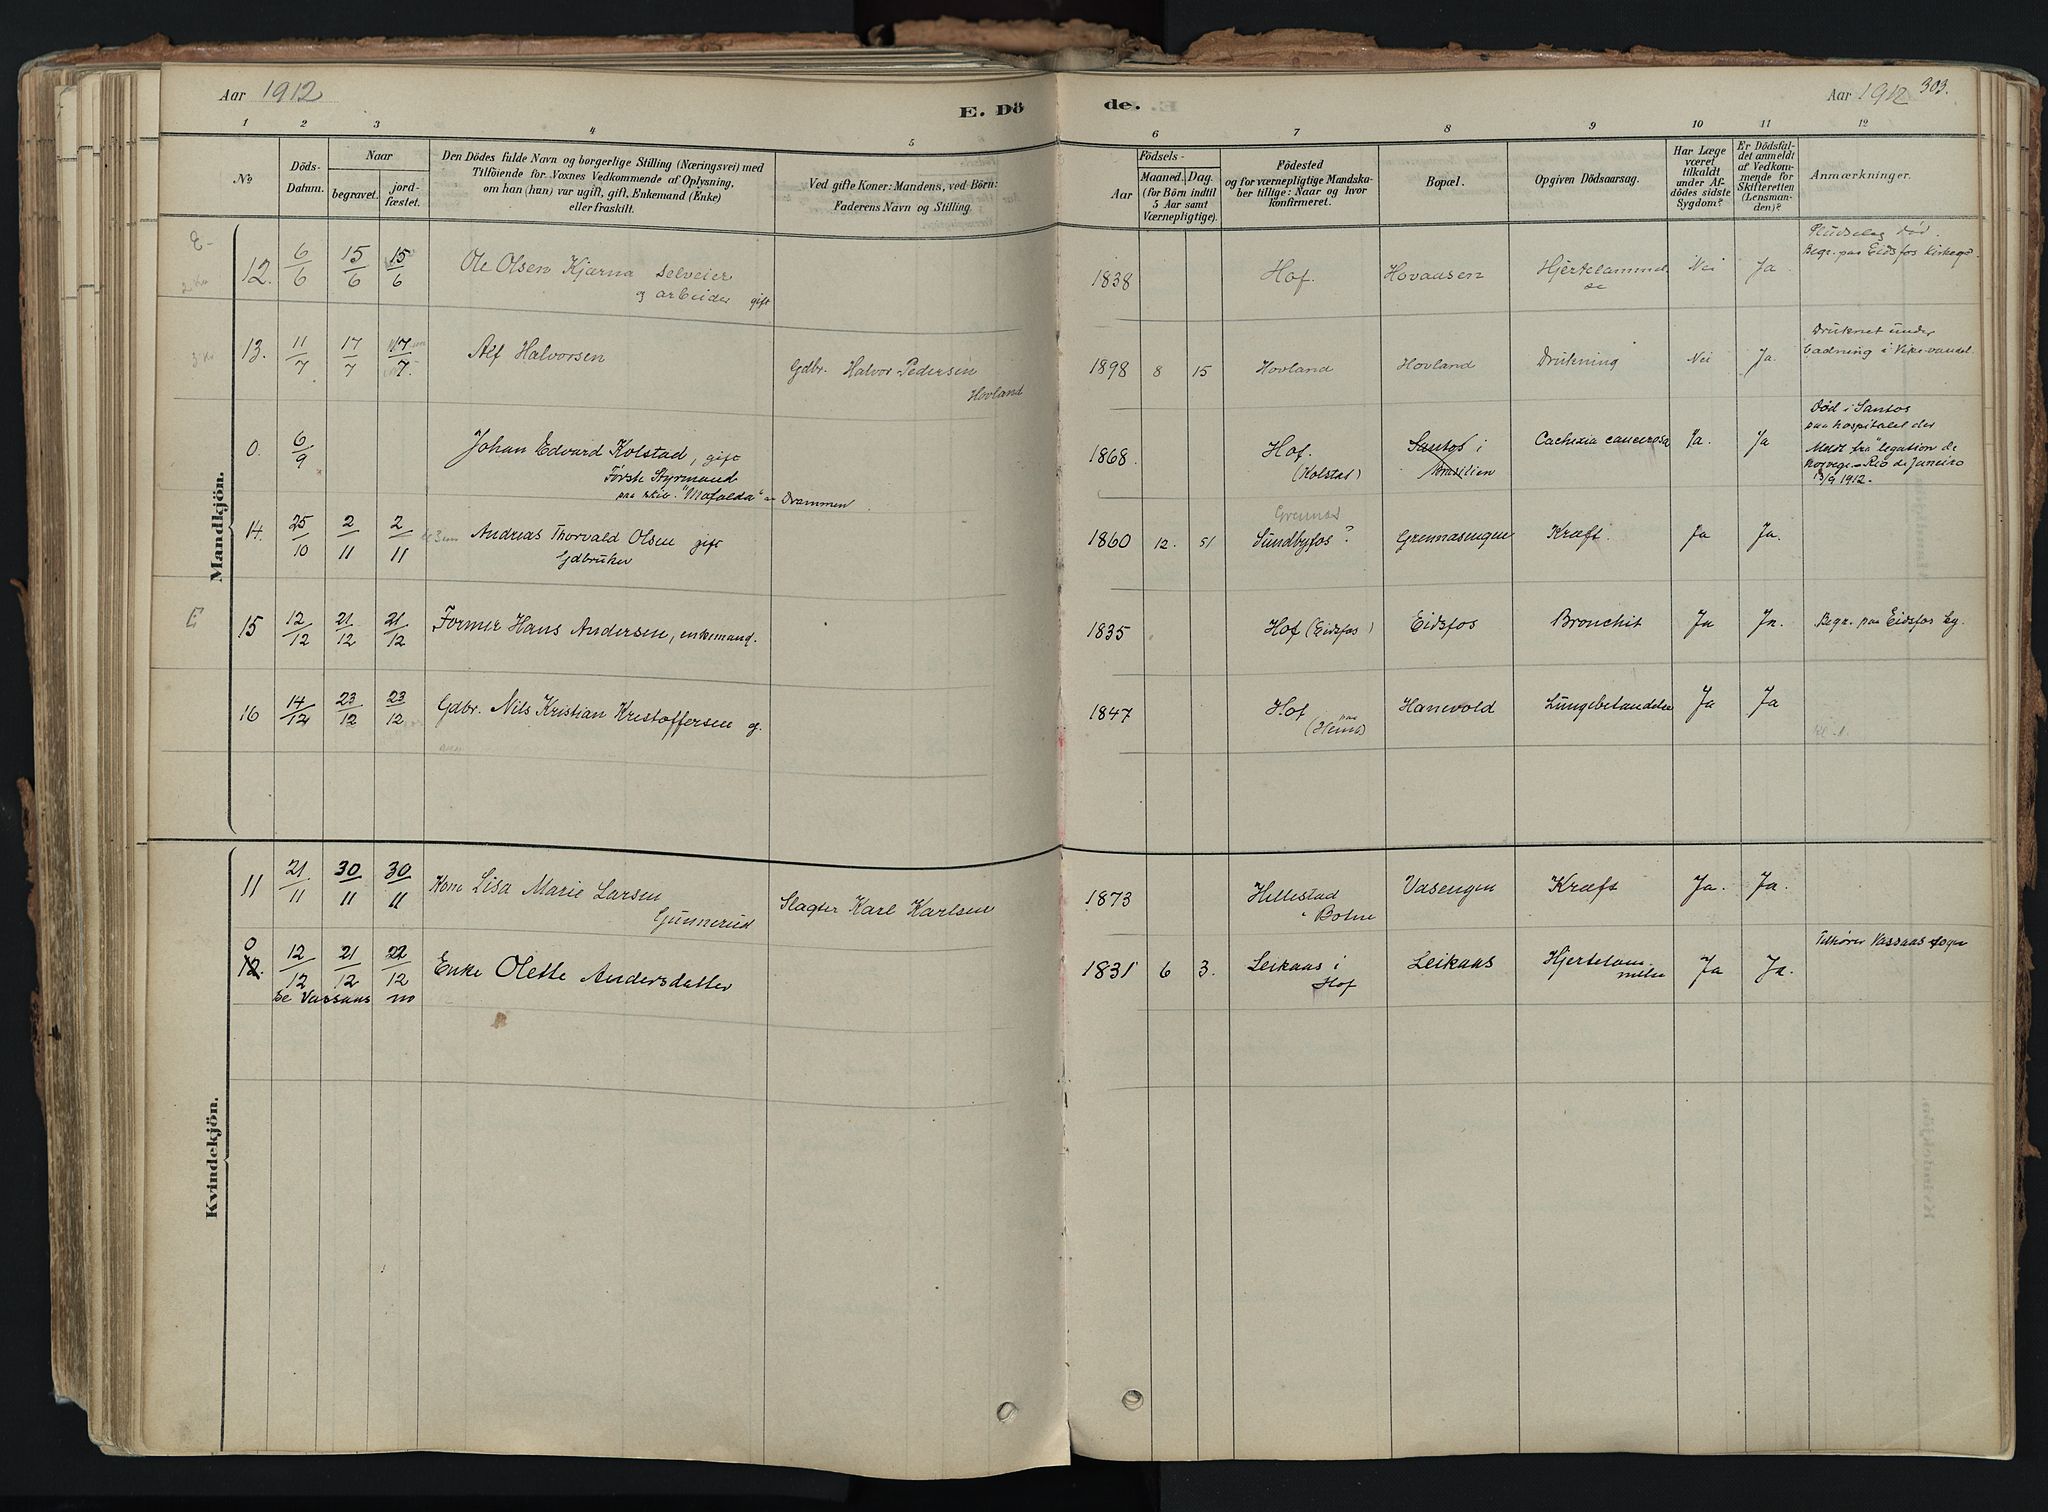 Aar 1912
E. Dö
de.
Aar 1912
303.
1 2 3 4 5 6 7 8 9 10 11 12
No.
Döds-Datum.
Naar
begravet.
jord-fæstet.
Den Dödes fulde Navn og borgerlige Stilling (Næringsvei) med
Tilföiende for Voxnes Vedkommende af Oplysning,
om han (hun) var ugift, gift, Enkemand (Enke)
eller fraskilt.
Ved gifte Koner: Mandens, ved Börn:
Faderens Navn og Stilling.
Födsels-
Aar
Maaned. Dag.
(for Börn indtil
5 Aar samt
Værnepligtige).
Födested
og for værnepligtige Mandska-
ber tillige: Naar og hvor
konfirmeret.
Bopæl.
Opgiven Dödsaarsag.
Har Læge
været
tilkaldt
under Af-
dödes sidste
Sygdom?
Er Dödsfal-
det anmeldt
af Vedkom-
mende for
Skifteretten
(Lensman-
den)?
Anmærkninger.
Mandkjön.
E-
12. 6/6 15/6 15/6 Ole Olsen Kjærna selveier
og arbeider gift
1838 Hof. Hovaasen Hjertelammel
se
Nei Ja
Pludselig død.
Begr. paa Eidsfos Kirkeg.
13. 11/7 17/7 17/7 Alf Halvorsen
Gdbr. Halvor Pedersen
Hovland
1898 8 15 Hovland Hovland Drukning Nei Ja.
Druknet under
badning i Vikevandet
0. 6/9 Johan Edvard Kolstad, gift
Første Styrmand
paa skib. "Mafalda" av Drammen.
1868. Hof.
(Kolstad)
Santos i
Brasilien
Cachexia cancerosa Ja. Ja
Død i Santos
paa hospitalet der
Meldt fra "legation de
Norvege - Rio de Janeiro
13/9 1912.
14. 25/10 2/11 2/11 Andreas Thorvald Olsen gift
Gdbruker
1860 12. 51
Grennes
Sundbyfos? Grennasengen Kræft. Ja Ja.
E
15 12/12 21/12 21/12 Former Hans Andersen, enkemand.
1835 Hof (Eidsfos) Eidsfos Bronchit Ja Ja. Begr. paa Eidsfos kg.
16 14/12 23/12 23/12 Gdbr. Nils Kristian Kristoffersen g.
1847 Hof Hanevold Lungebetændelse Ja Ja
Kvindekjön.
11 21/11 30/11 30/11 Kone Lisa Marie Larsen
Gunnerud
Slagter Karl Karlsen
1873 Hillestad
i Botne
Vasengen Kræft Ja. Ja.
0
12. 12/12 21/12 22/12 Enke Olette Andersdatter
se Vassaas no
1831 6 3. Leikaas i
Hof
Leikaas Hjertelam-
melse
Ja Ja.
Tilhører Vassaas sogn